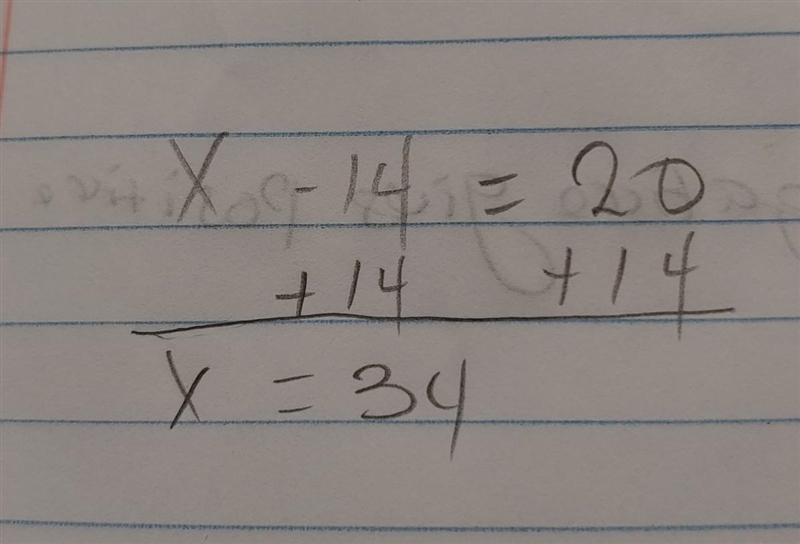 x - 14 = 20
+ 14 + 14
x = 34